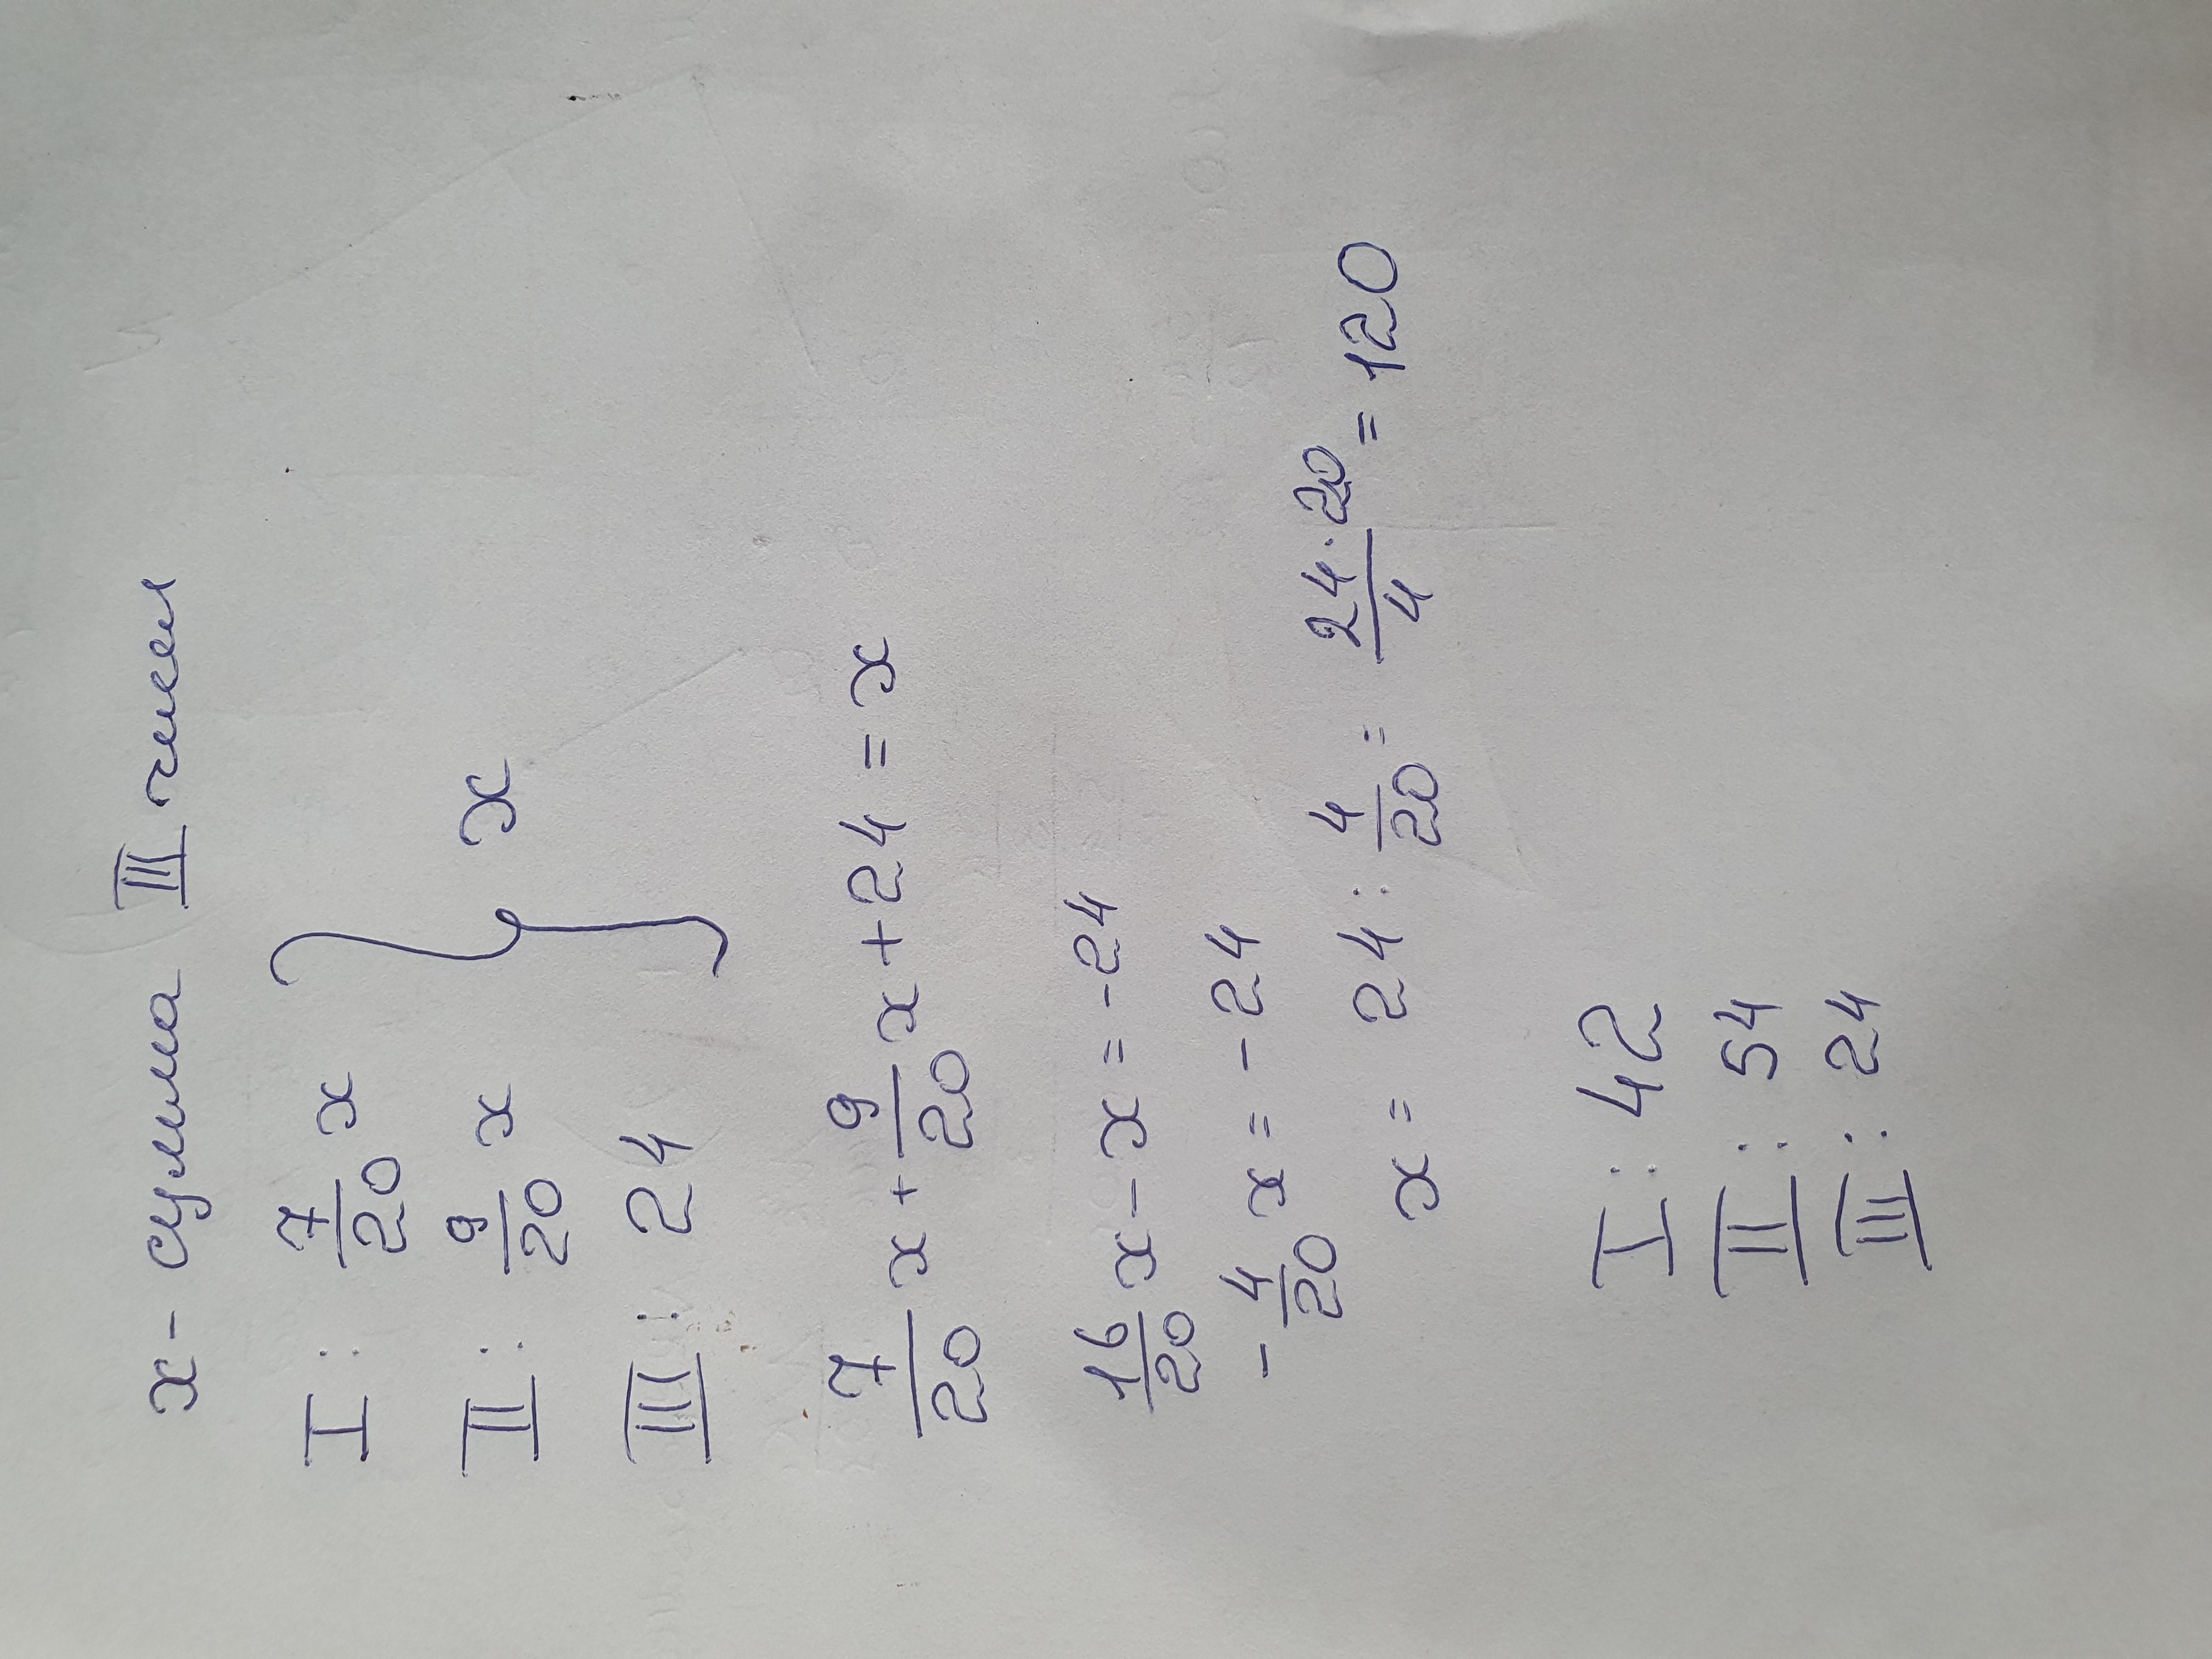 x - сумма III чисел
I : 7/20 x
II : 9/20 x } x
III : 24
7/20 x + 9/20 x + 24 = x
16/20 x - x = -24
- 4/20 x = - 24
x = 24 : 4/20 = 24·20/4 = 120
I : 42
II : 54
III : 24